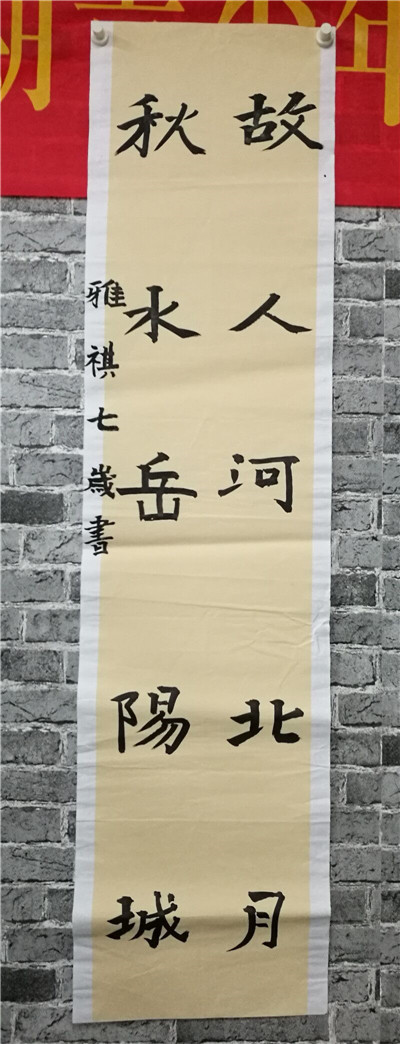 故人河北月
秋水岳陽城
雅祺七歲書